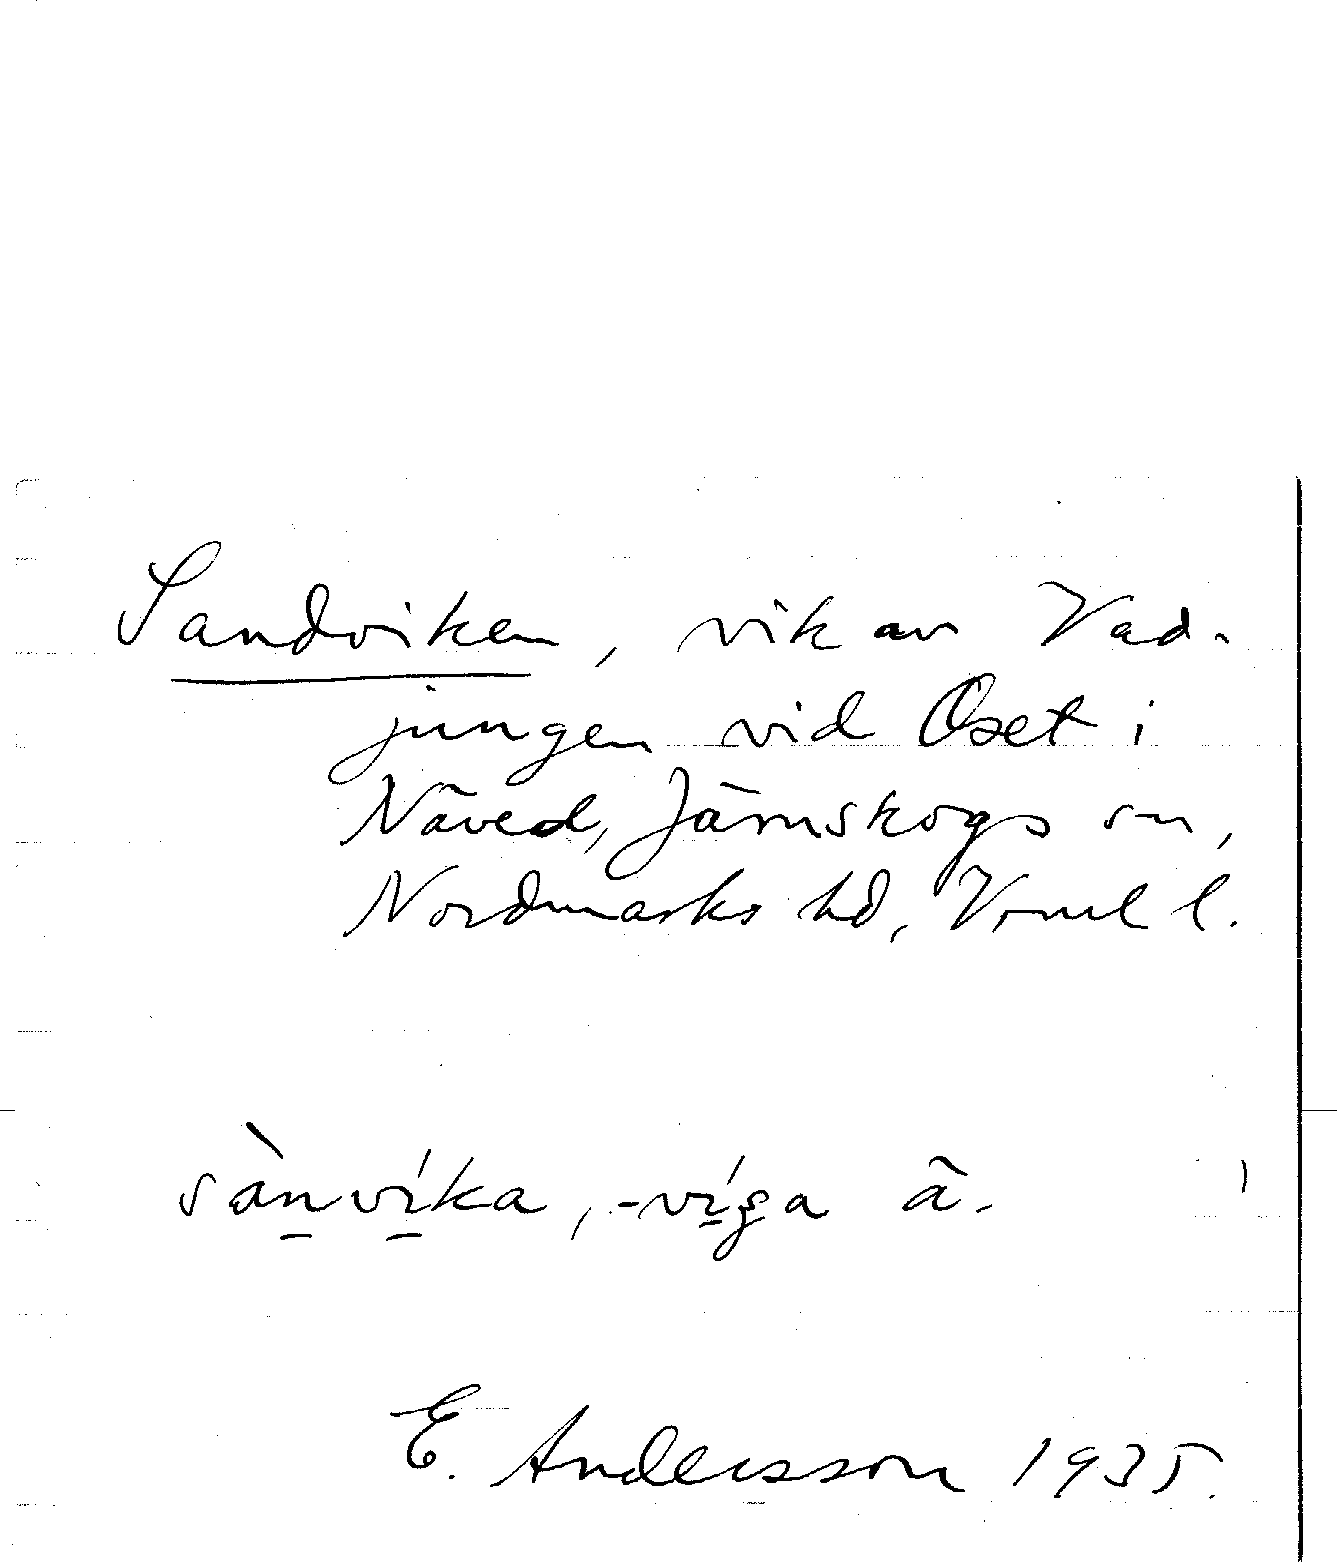 Sandviken, vik av Vad-
jungen vid Oset i
Näved, Järnskogs sn,
Nordmarks hd, Vrml l.
sànvíka, -víga ä.
E. Andersson 1935.